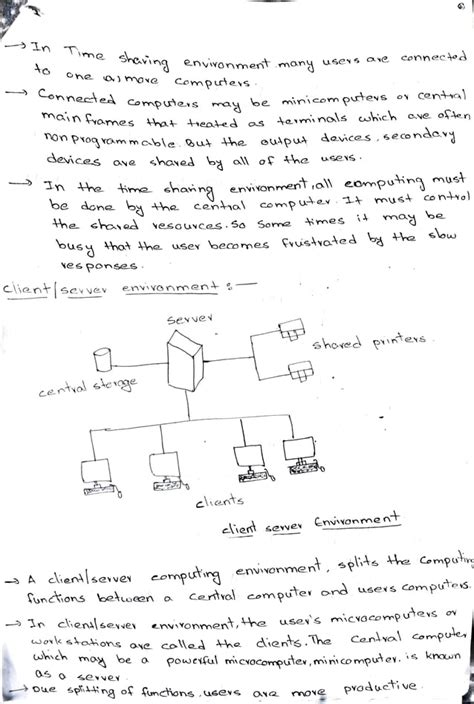 → In Time sharing environment many users are connected
to one or more computers.
→ Connected computers may be minicomputers or central
mainframes that treated as terminals which are often
nonprogrammable. But the output devices, secondary
devices are shared by all of the users.
→ In the time sharing environment, all computing must
be done by the central computer. It must control
the shared resources. So some times it may be
busy that the user becomes frustrated by the slow
responses.
client/server environment :—
server
shared printers
central storage
clients
client server Environment
→ A client/server computing environment, splits the computing
functions between a central computer and users computers.
→ In client/server environment, the user's microcomputers or
work stations are called the clients. The Central computer
which may be a powerful microcomputer, minicomputer. is known
as a server
→ Due splitting of functions, users are more productive.